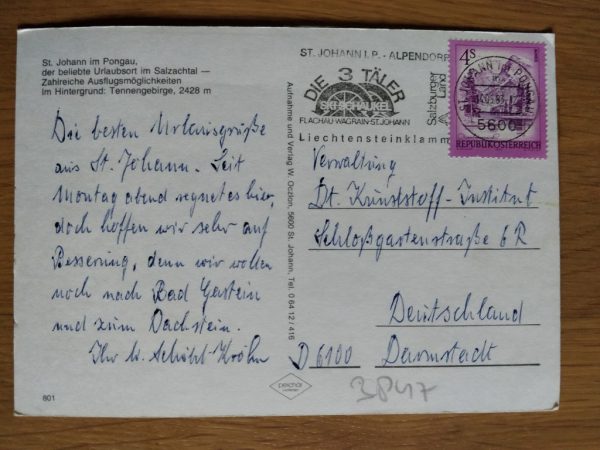 St. Johann im Pongau,
der beliebte Urlaubsort im Salzachtal —
Zahlreiche Ausflugsmöglichkeiten
Im Hintergrund: Tennengebirge, 2428 m
Die besten Urlaubsgrüße
aus St. Johann. Seit
Montag abend regnet es hier,
doch hoffen wir sehr auf
Besserung, denn wir wollen
noch nach Bad Gastein
und zum Dachstein.
Ihr
801
Aufnahme und Verlag W. Oczlon, 5600 St. Johann, Tel. 0 64 12 / 416
ST. JOHANN I. P. - ALPENDORF
DIE 3 TÄLER
SKI-SCHAUKEL
FLACHAU-WAGRAIN-ST.JOHANN
Liechtensteinklamm
Salzburger
Land
4 S
ST. JOHANN IM PONGAU
5600
REPUBLIK ÖSTERREICH
Verwaltung
Dt. Kunststoff-Institut
Schloßgartenstraße 6 R
Deutschland
D 6100 Darmstadt